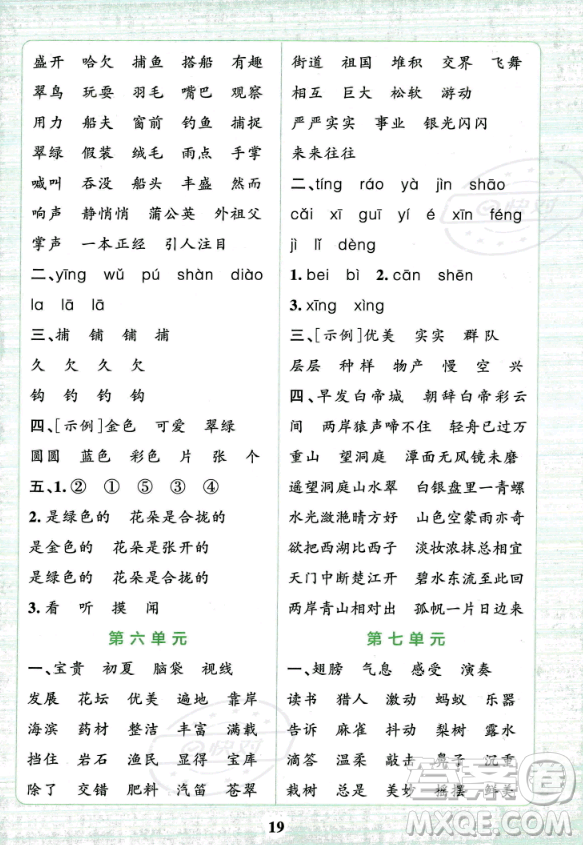 盛开 哈欠 捕鱼 搭船 有趣
翠鸟 玩耍 羽毛 嘴巴 观察
用力 船夫 窗前 钓鱼 捕捉
翠绿 假装 绒毛 雨点 手掌
喊叫 吞没 船头 丰盛 然而
响声 静悄悄 蒲公英 外祖父
掌声 一本正经 引人注目
二、yīng wǔ pú shàn diào
la lā lā
三、捕 铺 铺 捕
久 欠 久 欠 欠
钩 钓 钓 钩 钩
四、[示例]金色 可爱 翠绿
圆圆 蓝色 彩色 片 张 个
五、1.② ① ⑤ ③ ④
2.是绿色的 花朵是合拢的
是金色的 花朵是张开的
是绿色的 花朵是合拢的
3.看 听 摸 闻
第六单元
一、宝贵 初夏 脑袋 视线
发展 花坛 优美 遍地 靠岸
海滨 药材 整洁 丰富 满载
挡住 岩石 渔民 显得 宝库
除了 交错 肥料 汽笛 苍翠
街道 祖国 堆积 交界 飞舞
相互 巨大 松软 游动
严严实实 事业 银光闪闪
来来往往
二、tíng ráo yà jìn shāo
cǎi xī guī yí é xīn féng
jì lǐ dèng
1.bei bì 2.cān shēn
3.xīng xìng
三、[示例]优美 实实 群队
层层 种样 物产 慢 空 兴
四、早发白帝城 朝辞白帝彩云
间 两岸猿声啼不住 轻舟已过万
重山 望洞庭 潭面无风镜未磨
遥望洞庭山水翠 白银盘里一青螺
水光潋滟晴方好 山色空蒙雨亦奇
欲把西湖比西子 淡妆浓抹总相宜
天门中断楚江开 碧水东流至此回
两岸青山相对出 孤帆一片日边来
第七单元
一、翅膀 气息 感受 演奏
读书 猎人 激动 蚂蚁 乐器
告诉 麻雀 抖动 梨树 露水
滴答 温柔 敲击 鼻子 沉重
栽树 总是 美妙 摇摆 鲜美
19
快对
快对
答案圈
MXQE.COM